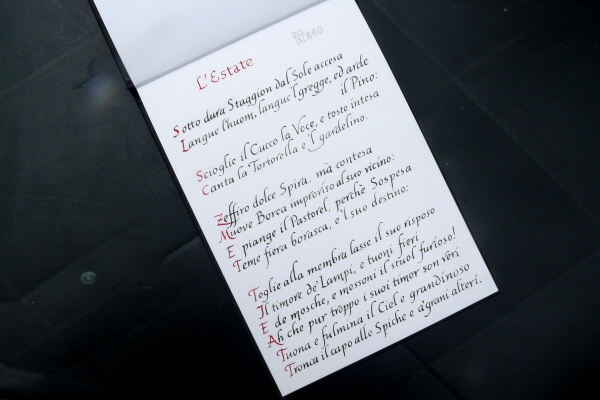 L'Estate
Sotto dura Staggion dal Sole accesa
Langue l'huom, langue 'l gregge, ed arde
il Pino:
Scioglie il Cucco la Voce, e tosto intesa
Canta la Tortorella e 'l gardelino.
Zeffiro dolce Spira, mà contesa
Muove Borea improviso al suo vicino:
E piange il Pastorel, perchè Sospesa
Teme fiera borasca, e 'l suo destino:
Toglie alla membra lasse il suo risposo
Il timore de' Lampi, e tuoni fieri
E de mosche, e mossoni il stuol furioso!
Ah che pur troppo i suoi timor son veri
Tuona e fulmina il Ciel e grandinoso
Tronca il capo alle Spiche e a' grani alteri.